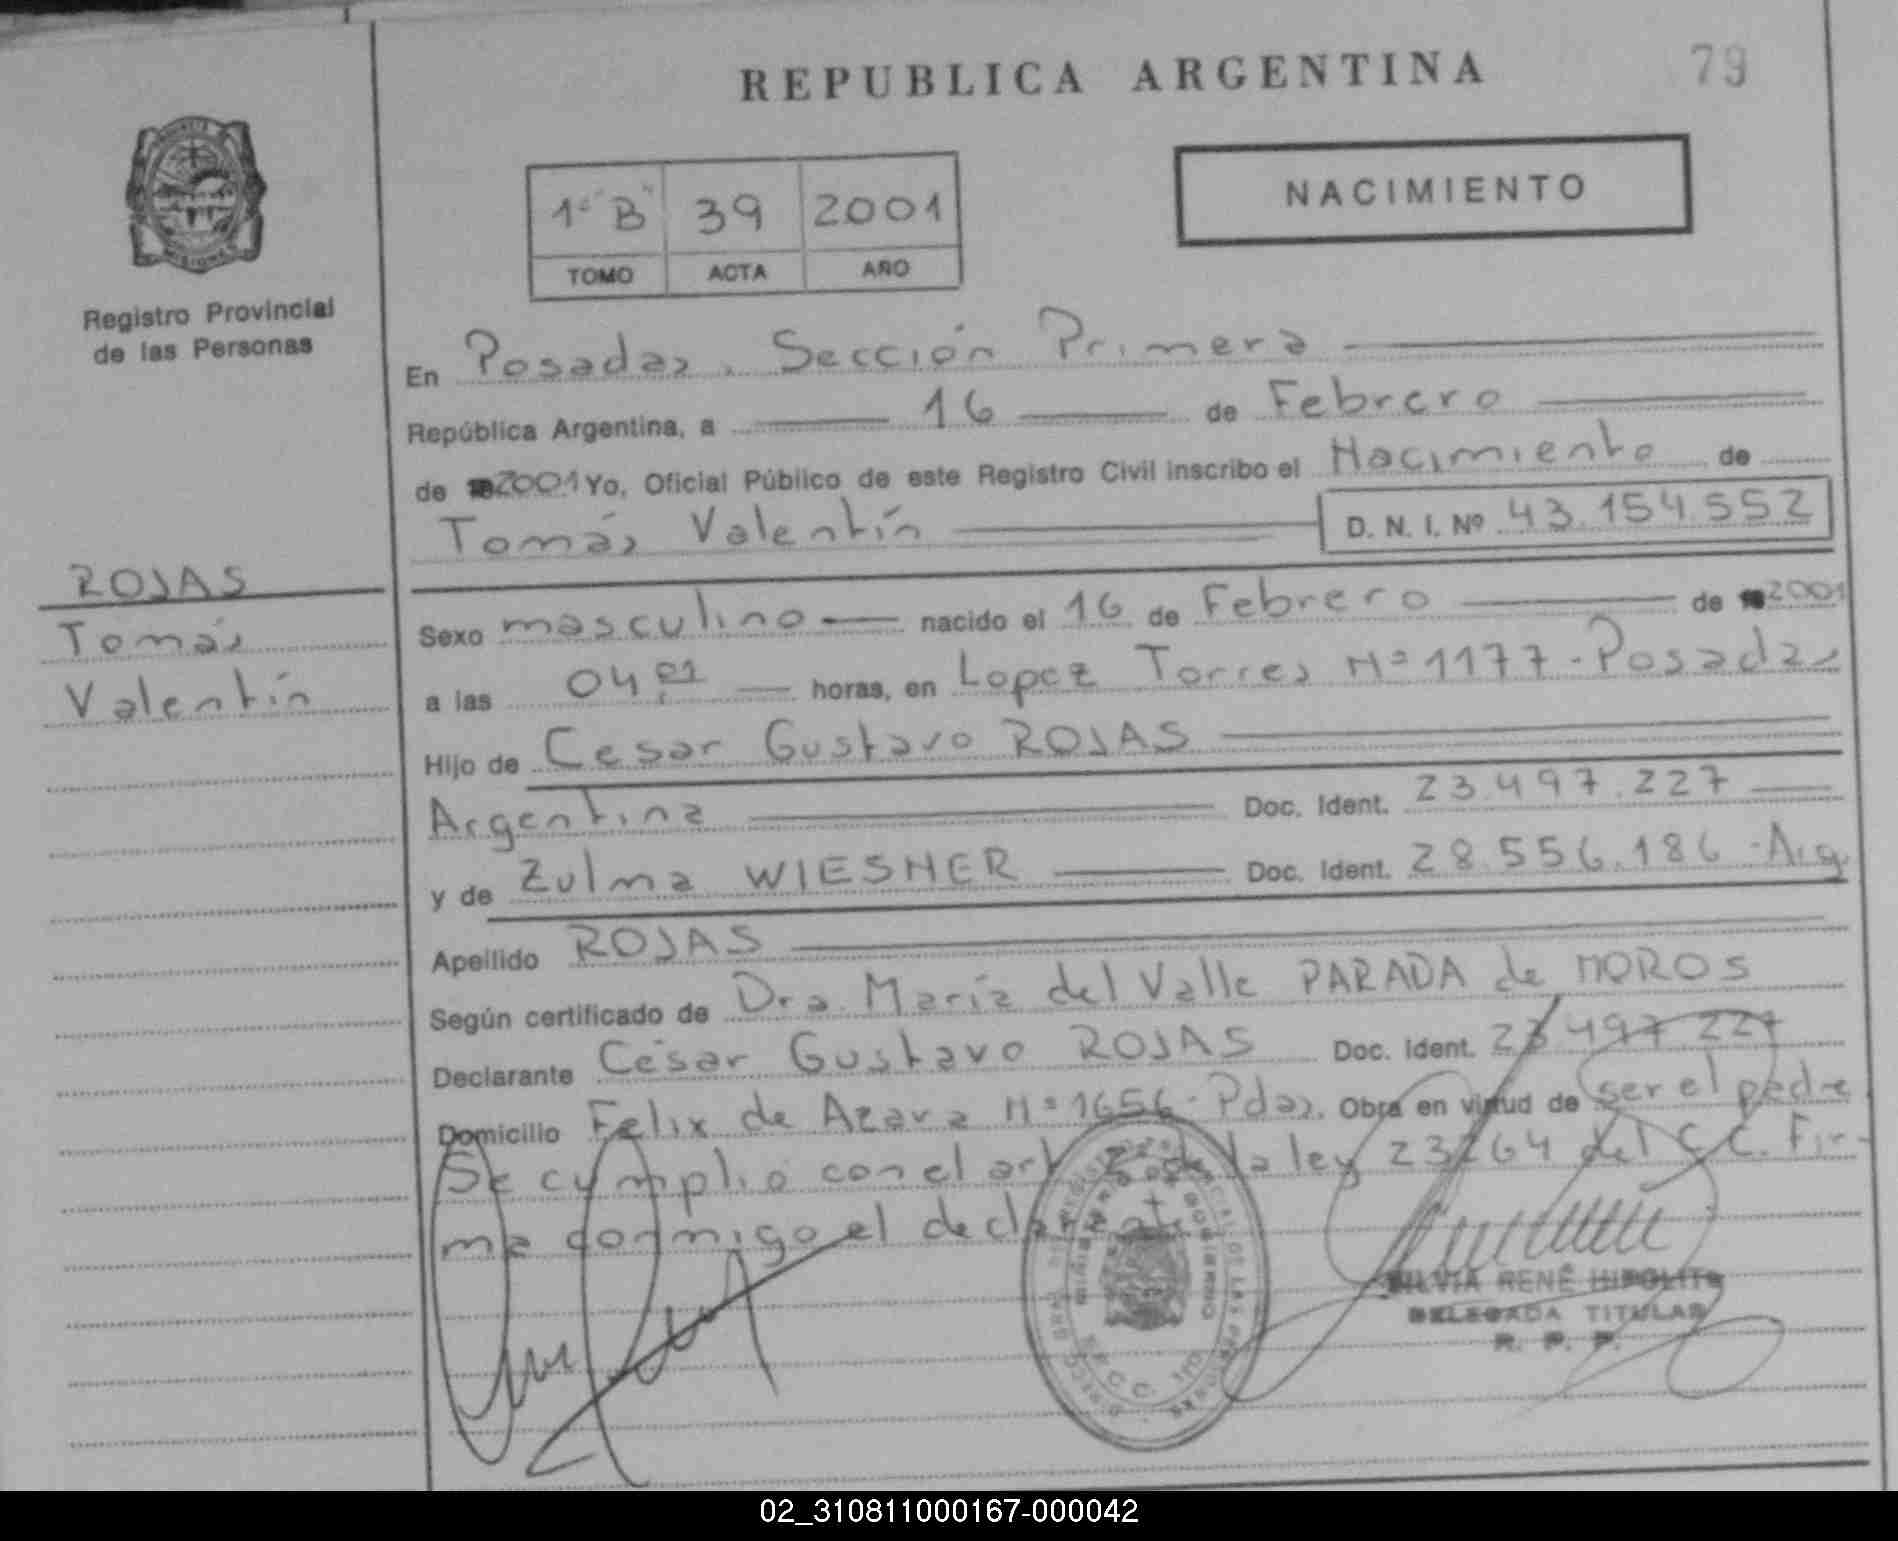 REPUBLICA ARGENTINA
79
Registro Provincial
de las Personas
1º "B" 39 2001
TOMO ACTA AÑO
NACIMIENTO
En Posadas, Sección Primera
República Argentina, a 16 de Febrero
de 2001 Yo, Oficial Público de este Registro Civil inscribo el Nacimiento de
Tomás Valentín D. N. I. Nº 43.154.552
ROJAS
Tomás
Valentín
Sexo masculino nacido el 16 de Febrero de 2001
a las 04:01 horas, en Lopez Torres Nº 1177 - Posadas
Hijo de Cesar Gustavo ROJAS
Argentina Doc. Ident. 23.497.227
y de Zulma WIESNER Doc. Ident. 28.556.186 - Arg.
Apellido ROJAS
Según certificado de Dra. María del Valle PARADA de MOROS
Declarante César Gustavo ROJAS Doc. Ident. 23.497.227
Domicilio Felix de Azara Nº 1656 - Pdas. Obra en virtud de ser el padre
Se cumplió con el art. de la ley 23264 del C.C. Fir-
ma conmigo el declarante
SILVIA RENÉ HIPOLITO
DELEGADA TITULAR
R. P. P.
02_310811000167-000042